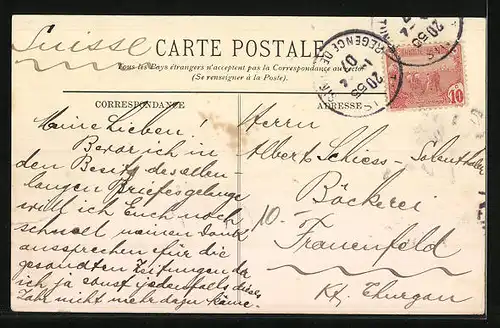 Suisse
CARTE POSTALE
Tous les Pays étrangers n'acceptent pas la Correspondance au recto
(Se renseigner à la Poste.)
CORRESPONDANCE
ADRESSE
Meine Lieben!
Bevor ich in
den Besitz des allen
langen Briefes gelange
will ich Euch noch
schnell meinen Dank
aussprechen für die
gesandten Zeitungen da
ich ja sonst jedenfalls dieses
Jahr nicht mehr dazu käme.
Herrn
Albert Schiess-
Bäckerei
10.
Frauenfeld
Kt. Thurgau
REGENCE DE
20 55
1-4
07
20 55
10